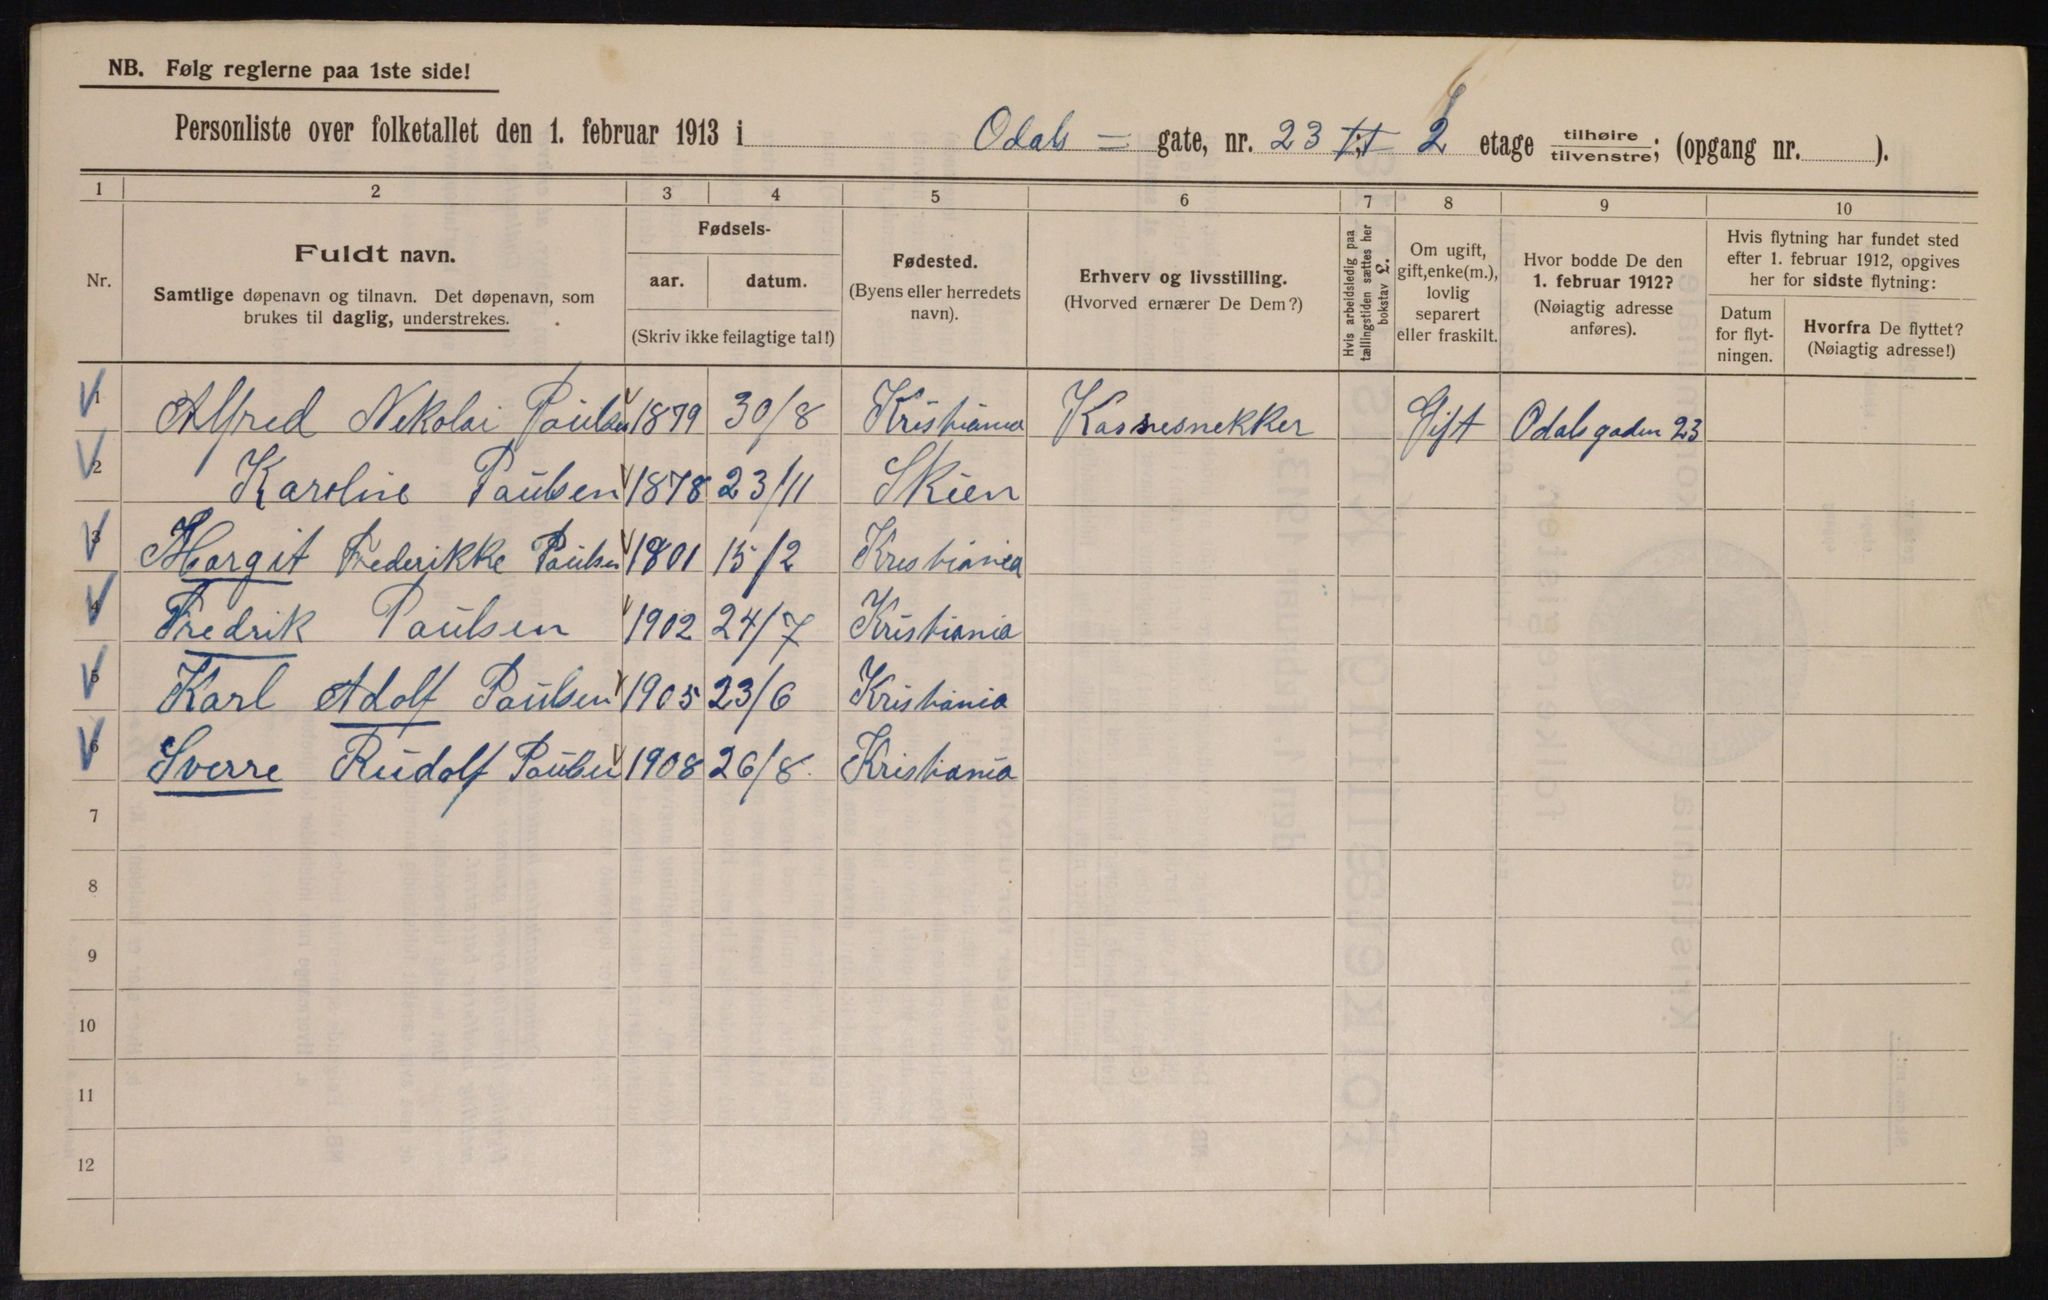 NB. Følg reglerne paa 1ste side!
Personliste over folketallet den 1. februar 1913 i Odals = gate, nr. 23 2 etage tilhøire / tilvenstre; (opgang nr. ).
1 2 3 4 5 6 7 8 9 10
Nr.
Fuldt navn.
Samtlige døpenavn og tilnavn. Det døpenavn, som
brukes til daglig, understrekes.
Fødsels-
aar. datum.
(Skriv ikke feilagtige tal!)
Fødested.
(Byens eller herredets
navn).
Erhverv og livsstilling.
(Hvorved ernærer De Dem?)
Hvis arbeidsledig paa
tællingstiden sættes her
bokstav £.
Om ugift,
gift, enke(m.),
lovlig
separert
eller fraskilt.
Hvor bodde De den
1. februar 1912?
(Nøiagtig adresse
anføres).
Hvis flytning har fundet sted
efter 1. februar 1912, opgives
her for sidste flytning:
Datum
for flyt-
ningen.
Hvorfra De flyttet?
(Nøiagtig adresse!)
1 Alfred Nekolai Paulsen 1879 30/8 Kristiania Kassesnekker Gift Odalsgaden 23
2 Karoline Paulsen 1878 23/11 Skien
3 Margit Frederikke Paulsen 1901 15/2 Kristiania
4 Fredrik Paulsen 1902 24/7 Kristiania
5 Karl Adolf Paulsen 1905 23/6 Kristiania
6 Sverre Rudolf Paulsen 1908 26/8. Kristiania
7
8
9
10
11
12